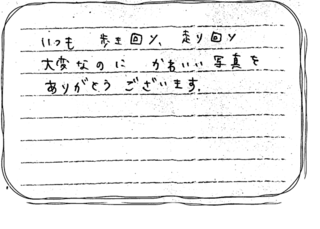 いつも 歩き回り、走り回り
大変なのに かわいい写真を
ありがとう ございます.